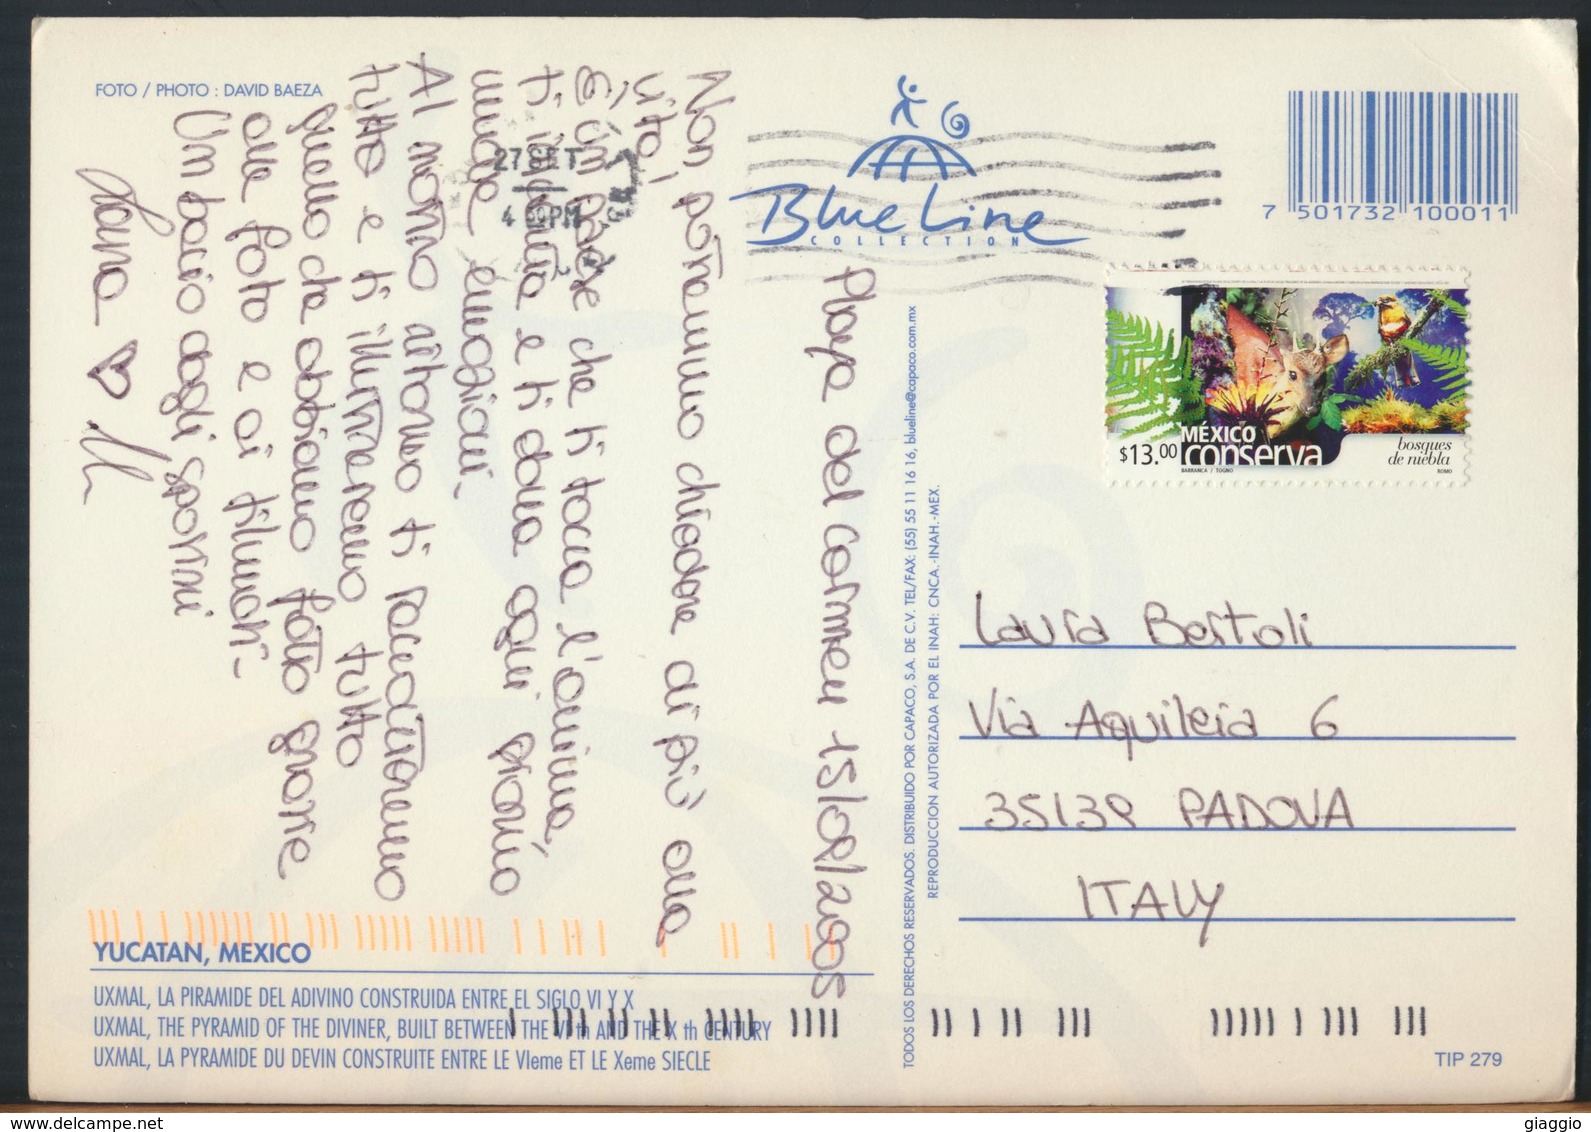 FOTO / PHOTO : DAVID BAEZA
Playa del Carmen 15/09/2005
Non potremmo chiedere di più alla
vita!
È un paese che ti tocca l'anima,
ti incanta e ti dona ogni giorno
emozioni.
Al nostro ritorno ti racconteremo
tutto e ti illustreremo tutto
quello che abbiamo fatto grazie
alle foto e ai filmati-
Un bacio dagli sposini
27 SET
4 PM
Blue Line
COLLECTION
7 501732 100011
MÉXICO
conserva
$13.00
BARRANCA / TOGNO
bosques
de niebla
ROMO
Laura Bertoli
Via Aquileia 6
35139 PADOVA
ITALY
TODOS LOS DERECHOS RESERVADOS. DISTRIBUIDO POR CAPACO, S.A. DE C.V. TEL/FAX: (55) 55 11 16 16, blueline@capaco.com.mx
REPRODUCCION AUTORIZADA POR EL INAH: CNCA.-INAH.-MEX.
YUCATAN, MEXICO
UXMAL, LA PIRAMIDE DEL ADIVINO CONSTRUIDA ENTRE EL SIGLO VI Y X
UXMAL, THE PYRAMID OF THE DIVINER, BUILT BETWEEN THE VI th AND THE X th CENTURY
UXMAL, LA PYRAMIDE DU DEVIN CONSTRUITE ENTRE LE VIeme ET LE Xeme SIECLE
TIP 279
giaggio